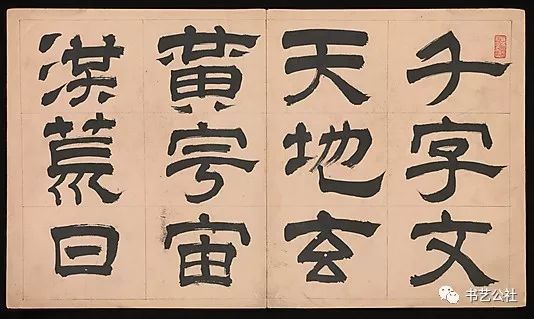 千字文
天地玄
黄宇宙
洪荒日
书艺公社